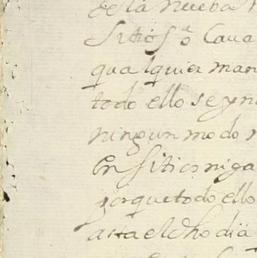 de la nueba
sitios o Cava
qualquier man
todo ello se yn
ningun modo
en sitios ni ga
porque todo ello
asta el dho dia